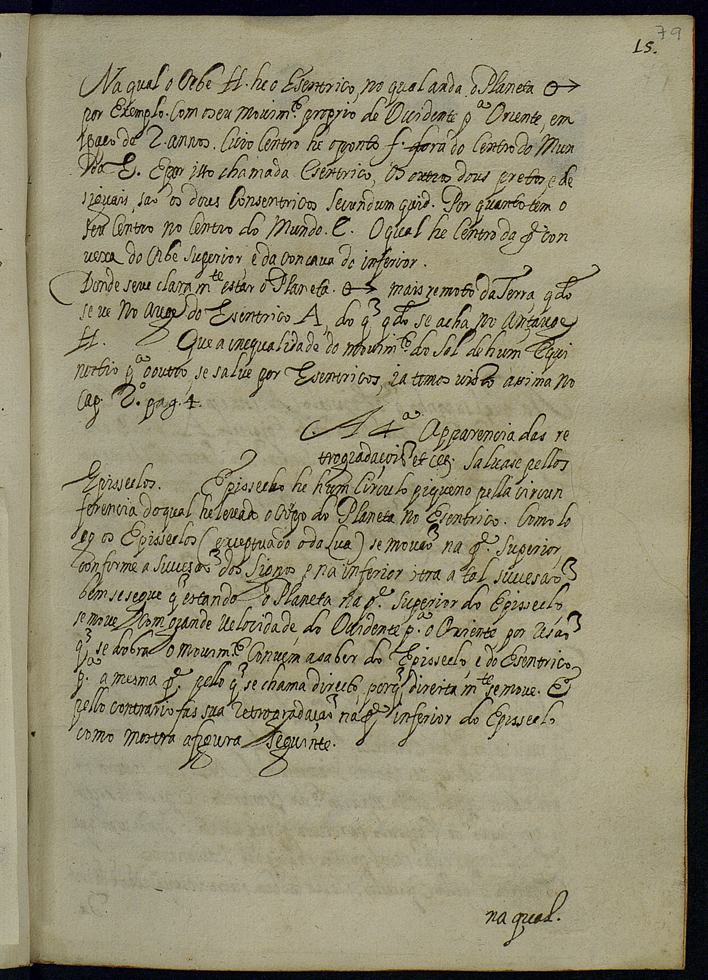 79
15.
Na qual o Orbe H. he o Esentrico, no qual anda o Planeta ♂
por Exemplo. Com o seu movim.to proprio de Occidente p.a Oriente, em
espaço de 2. annos. Cuio Centro he o ponto f. fora do Centro do Mun
do E. E por isto chamada Esentrico, Os outros dous pretos, e de
siguais, saõ os dous Consentricos secundum quid. Por quanto tem o
seu Centro no Centro do Mundo. E. O qual he Centro da p.e con
uexa do Orbe Superior e da concava do inferior.
Donde se ve clara m.te estár o Planeta. ♂ mais remoto da Terra, q.do
se ve no Auge do Esentrico A, do q̃ q.do se acha no
H. Que a inequalidade do movim.to do Sol de hum Equi
noctio p.a o outro, se salue por Esentricos, ia temos visto assima no
Cap. 2.o pag. 4.
A 4.a Apparencia das re
trogradaçois, et cet. saluase pellos
Episselos. Episselo he hum Circulo piqueno pella circun
ferencia do qual he levado o Corpo do Planeta no Esentrico. Como lo
go os Episselos (exceptuado o da Lua) se movaõ na p.e Superior,
conforme a Sucesaõ dos Signos, e na inferior contra a tal sucesaõ
bem se segue q̃ estando o Planeta na p.e Superior do Episselo
se move com grande velocidade do Occidente p.a o Oriente por resaõ
q̃ se dobra o movim.to Convem a saber do Episselo, e do Esentrico,
p.a a mesma p.e pello q̃ se chama directo, porq̃ direita m.te se move. E
pello contrario fas sua retrogradaçaõ na p.e inferior do Episselo
como mostra a figura seguinte.
na qual.